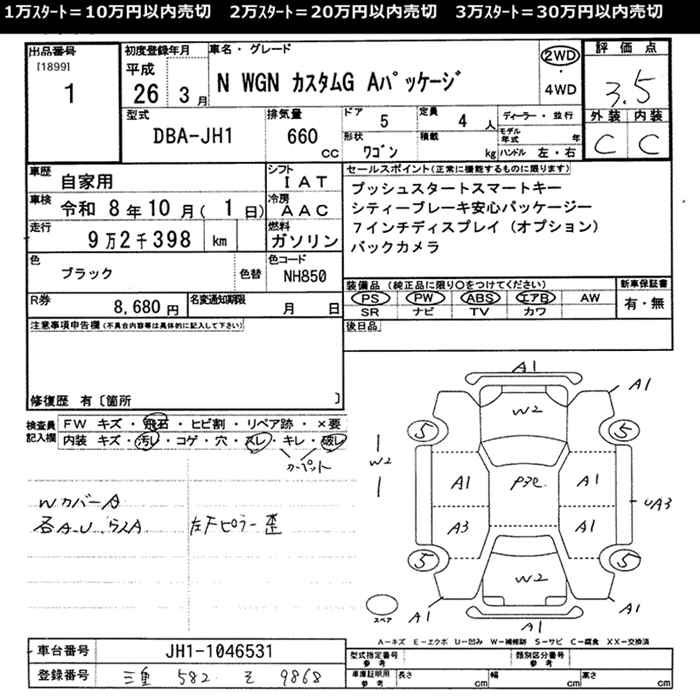 1万スタート=10万円以内売切　2万スタート=20万円以内売切　3万スタート=30万円以内売切
出品番号 初度登録年月 車名・グレード 評価点
[1899]
1
平成
26 3月
N WGN カスタムG Aパッケージ
2WD
・
4WD
3.5
型式 排気量 ドア 定員 ディーラー・並行 外装 内装
DBA-JH1 660 cc 5 4人
モデル年式 年
形状 積載
ワゴン kg ハンドル 左・右
C C
車歴 自家用 シフト IAT
セールスポイント(正常に機能するものに限ります)
車検 令和 8年10月(1日) 冷房 AAC
走行 9万2千398 km 燃料 ガソリン
プッシュスタートスマートキー
シティーブレーキ安心パッケージー
7インチディスプレイ(オプション)
バックカメラ
色 ブラック 色替 色コード NH850
装備品(純正品に限り○をつけてください) 新車保証書
PS PW ABS エアB AW 有・無
SR ナビ TV カワ
R券 8,680円 名変通知期限 月 日
後日品
注意事項申告欄(不具合内容等は具体的に記入して下さい)
修復歴 有〔箇所 〕
検査員記入欄
FW キズ・飛石・ヒビ割・リペア跡・×要
内装 キズ・汚レ・コゲ・穴・スレ・キレ・破レ
カーペット
WカバーA
各A.U
左Fピラー歪
A1
W2
A1
A1
5
5
W2
A1
P3e
A1
UA3
A3
A1
5
5
W2
A1
A1
A1
スペア
A-キズ E-エクボ U-凹み W-補修跡 S-サビ C-腐食 XX-交換済
車台番号 JH1-1046531
登録番号 三重 582 そ 9868
型式指定番号 参考 類別区分番号 参考
車庫証明用 参考 長さ cm 幅 cm 高さ cm